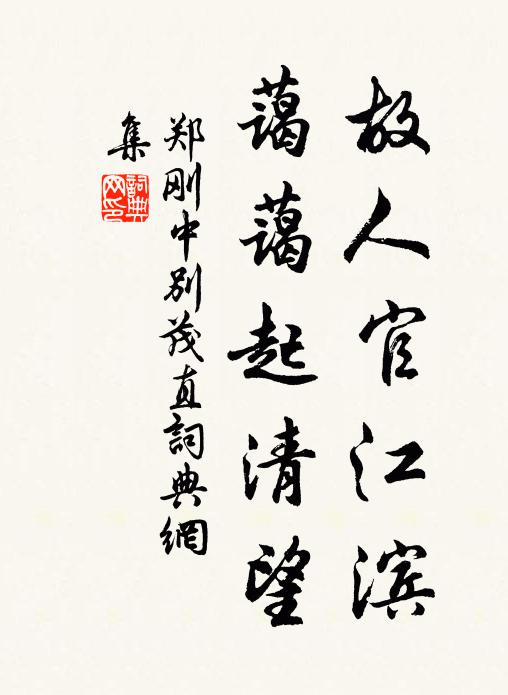 故人官江滨
蔼蔼起清望
郑刚中别茂直詞典網
集
詞典网印